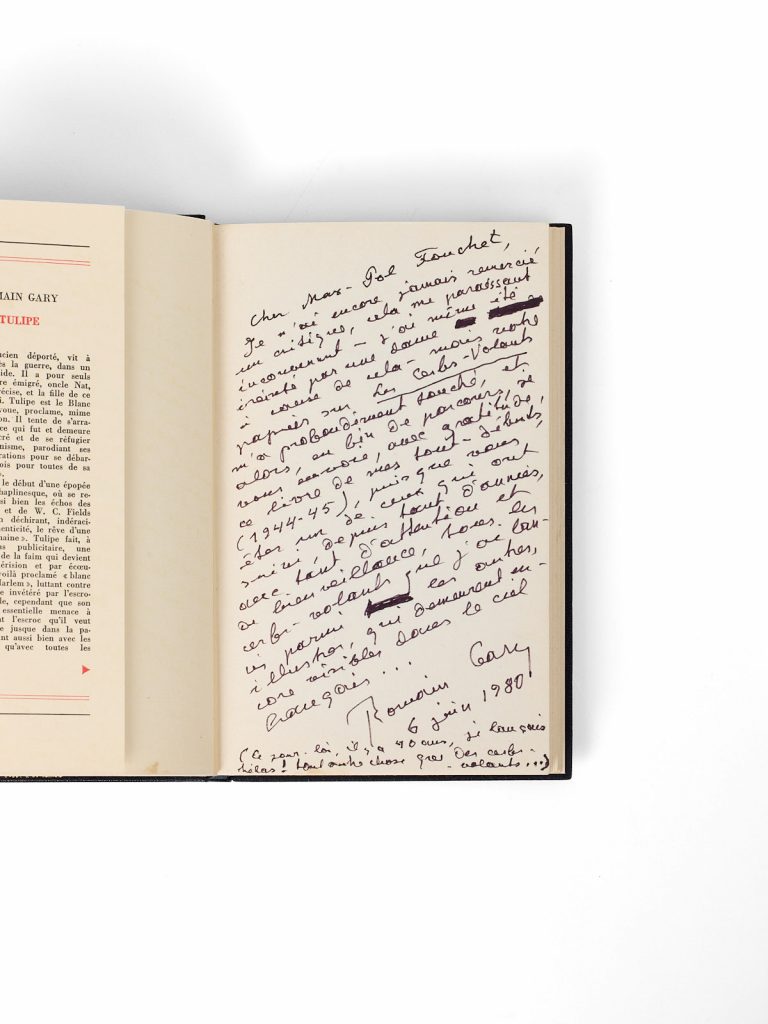 MAIN GARY
TULIPE
cien déporté, vit à
ès la guerre, dans un
ide. Il a pour seuls
re émigré, oncle Nat,
récise, et la fille de ce
i. Tulipe est le Blanc
voue, proclame, mime
on. Il tente de s'arra-
ce qui fut et demeure
cré et de se réfugier
nisme, parodiant ses
rations pour se débar-
ois pour toutes de sa
».
le début d'une épopée
haplinesque, où se re-
si bien les échos des
et de W. C. Fields
n déchirant, indéraci-
nenticité, le rêve d'une
maine ». Tulipe fait, à
ns publicitaire, une
de la faim qui devient
érision et par écœu-
voilà proclamé « blanc
Harlem », luttant contre
invétéré par l'escro-
le, cependant que son
essentielle menace à
nt l'escroc qu'il veut
e jusque dans la pa-
nt aussi bien avec les
qu'avec toutes les
Cher Max-Pol Fouchet,
Je n'ai encore jamais remercié
un critique, cela me paraissant
inconvenant – j'ai même été
éreinté par une dame
à cause de cela – mais votre
papier sur Les Cerfs-Volants
m'a profondément touché, et
alors, en fin de parcours, je
vous envoie, avec gratitude,
ce livre de mes tout-débuts
(1944-45), puisque vous
êtes un de ceux qui ont
suivi depuis tant d'années,
avec tant d'attention et
de bienveillance, tous les
cerfs-volants que j'ai lan-
cés parmi les autres,
illustres, qui demeurent en-
core visibles dans le ciel
français...
Romain Gary
6 juin 1980
(Ce jour-là, il y a 40 ans, je lançais
hélas! tout autre chose que des cerfs-
volants...)